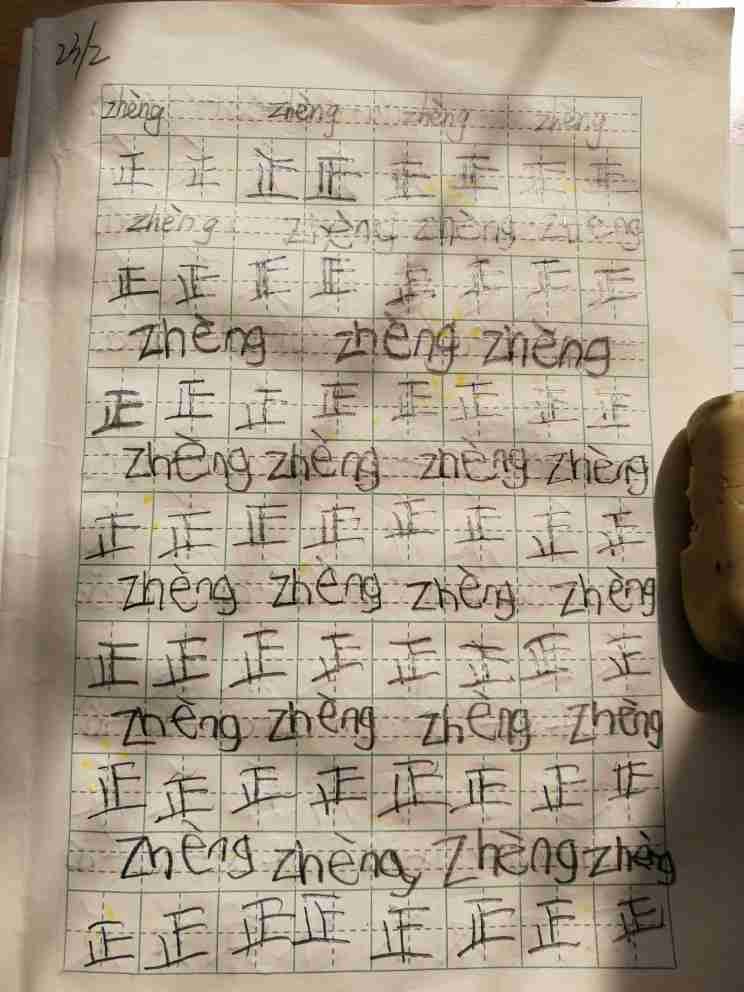 23/2
zhèng zhèng zhèng zhèng
正 正 正 正 正 正 正 正
zhèng zhèng zhèng zhèng
正 正 正 正 正 正 正 正
zhèng zhèng zhèng
正 正 正 正 正 正 正 正
zhèng zhèng zhèng zhèng
正 正 正 正 正 正 正 正
zhèng zhèng zhèng zhèng
正 正 正 正 正 正 正 正
zhèng zhèng zhèng zhèng
正 正 正 正 正 正 正 正
zhèng zhèng, zhèng zhèng
正 正 正 正 正 正 正 正